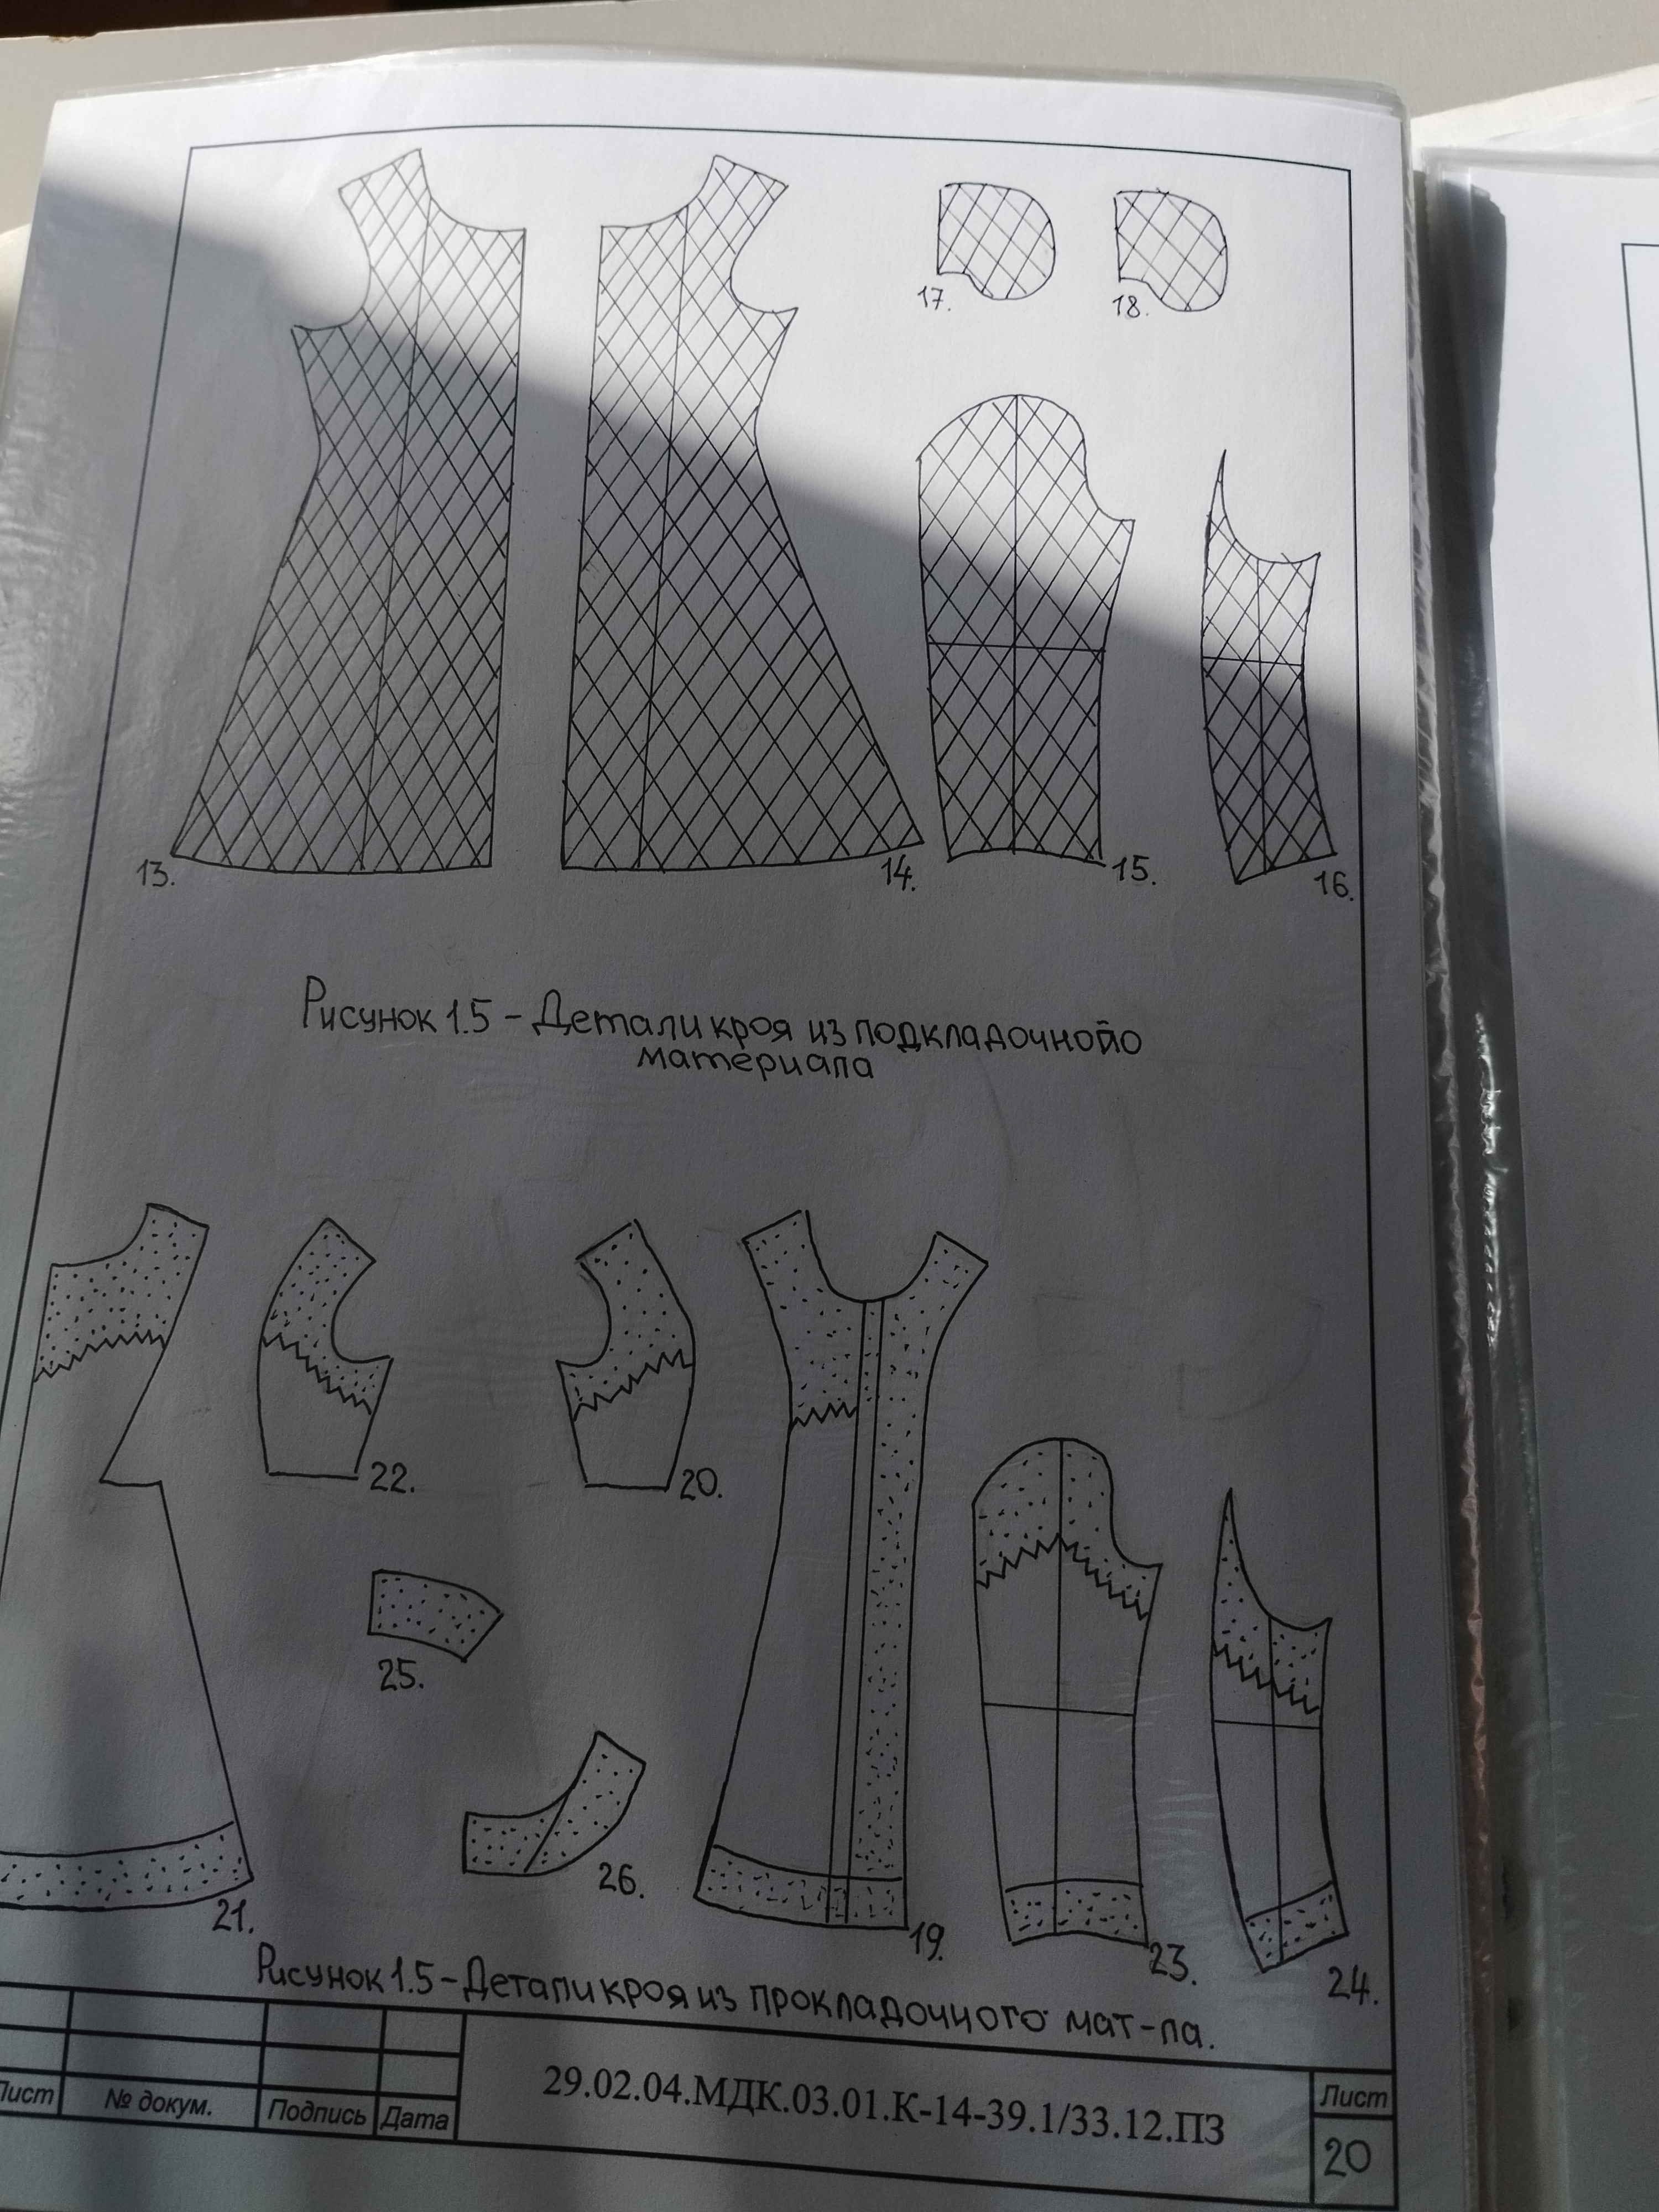 17.
18.
13.
14.
15.
16.
Рисунок 1.5 – Детали кроя из подкладочного
материала
22.
20.
25.
26.
21.
19.
23.
24.
Рисунок 1.5 – Детали кроя из прокладочного мат-ла.
Лист
№ докум.
Подпись
Дата
29.02.04.МДК.03.01.К-14-39.1/33.12.ПЗ
Лист
20